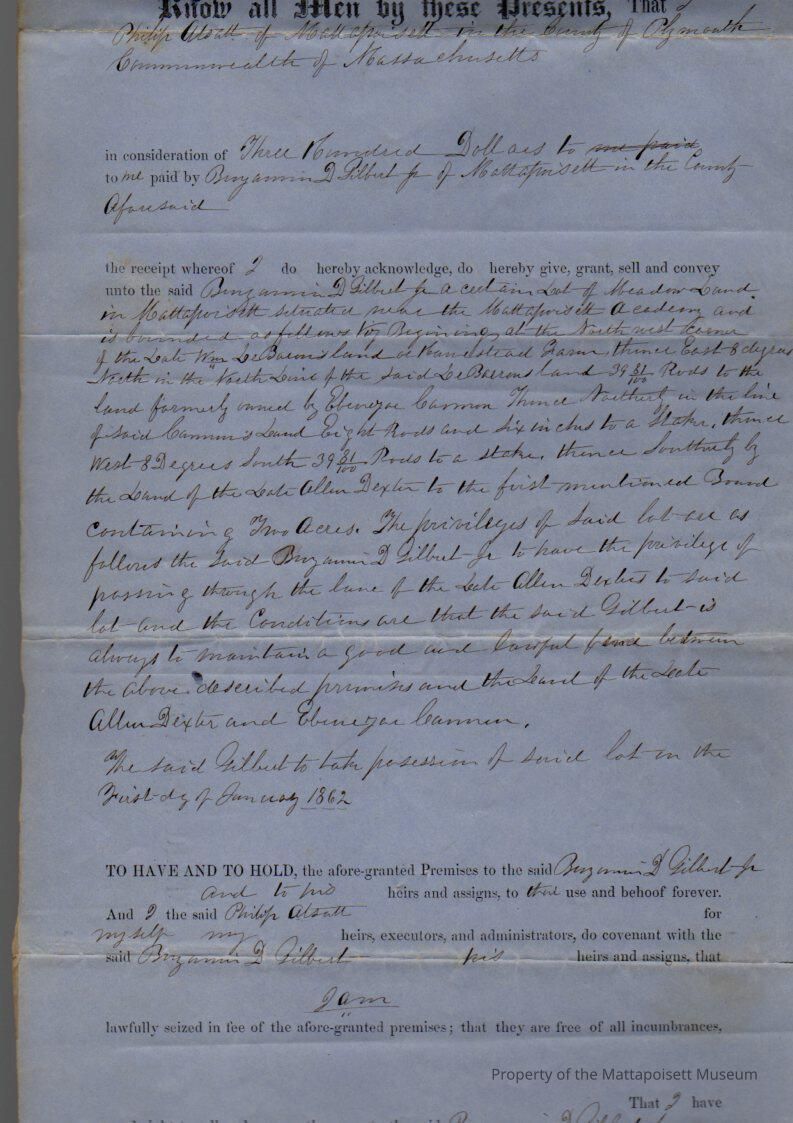 Know all Men by these Presents, That I
Philip Atsatt of Mattapoisett in the County of Plymouth
Commonwealth of Massachusetts
in consideration of Three Hundred Dollars to me paid
to me paid by Benjamin D Gilbert Jr of Mattapoisett in the County
Aforesaid
the receipt whereof I do hereby acknowledge, do hereby give, grant, sell and convey
unto the said Benjamin D Gilbert Jr a certain Lot of Meadow Land
in Mattapoisett situated near the Mattapoisett Academy and
is bounded as follows Viz Begining at the North west Corner
of the Late Wm LeBaron's land or Homestead Farm, thence East 8 degrees
North in the North Line of the said LeBarrons land 39 51/100 Rods to the
land formerly owned by Ebenezar Cannon Thence Northerly in the line
of said Cannon's Land Eight Rods and six inches to a Stake, thence
West 8 Degrees South 39 51/100 Rods to a stake, thence Southerly by
the Land of the Late Allen Dexter to the first mentioned Bound
Containing Two Acres. The privileges of said lot are as
follows the said Benjamin D Gilbert Jr to have the privilege of
passing through the lane of the Late Allen Dexter to said
lot and the Conditions are that the said Gilbert is
always to maintain a good and lawful fence between
the above described premises and the Land of the Late
Allen Dexter and Ebenezar Cannon.
The said Gilbert to take posession of said lot on the
First dy of January 1862
TO HAVE AND TO HOLD, the afore-granted Premises to the said Benjamin D Gilbert Jr
and to his heirs and assigns, to their use and behoof forever.
And I the said Philip Atsatt for
myself my heirs, executors, and administrators, do covenant with the
said Benjamin D Gilbert his heirs and assigns, that
I am
lawfully seized in fee of the afore-granted premises; that they are free of all incumbrances,
Property of the Mattapoisett Museum
That I have